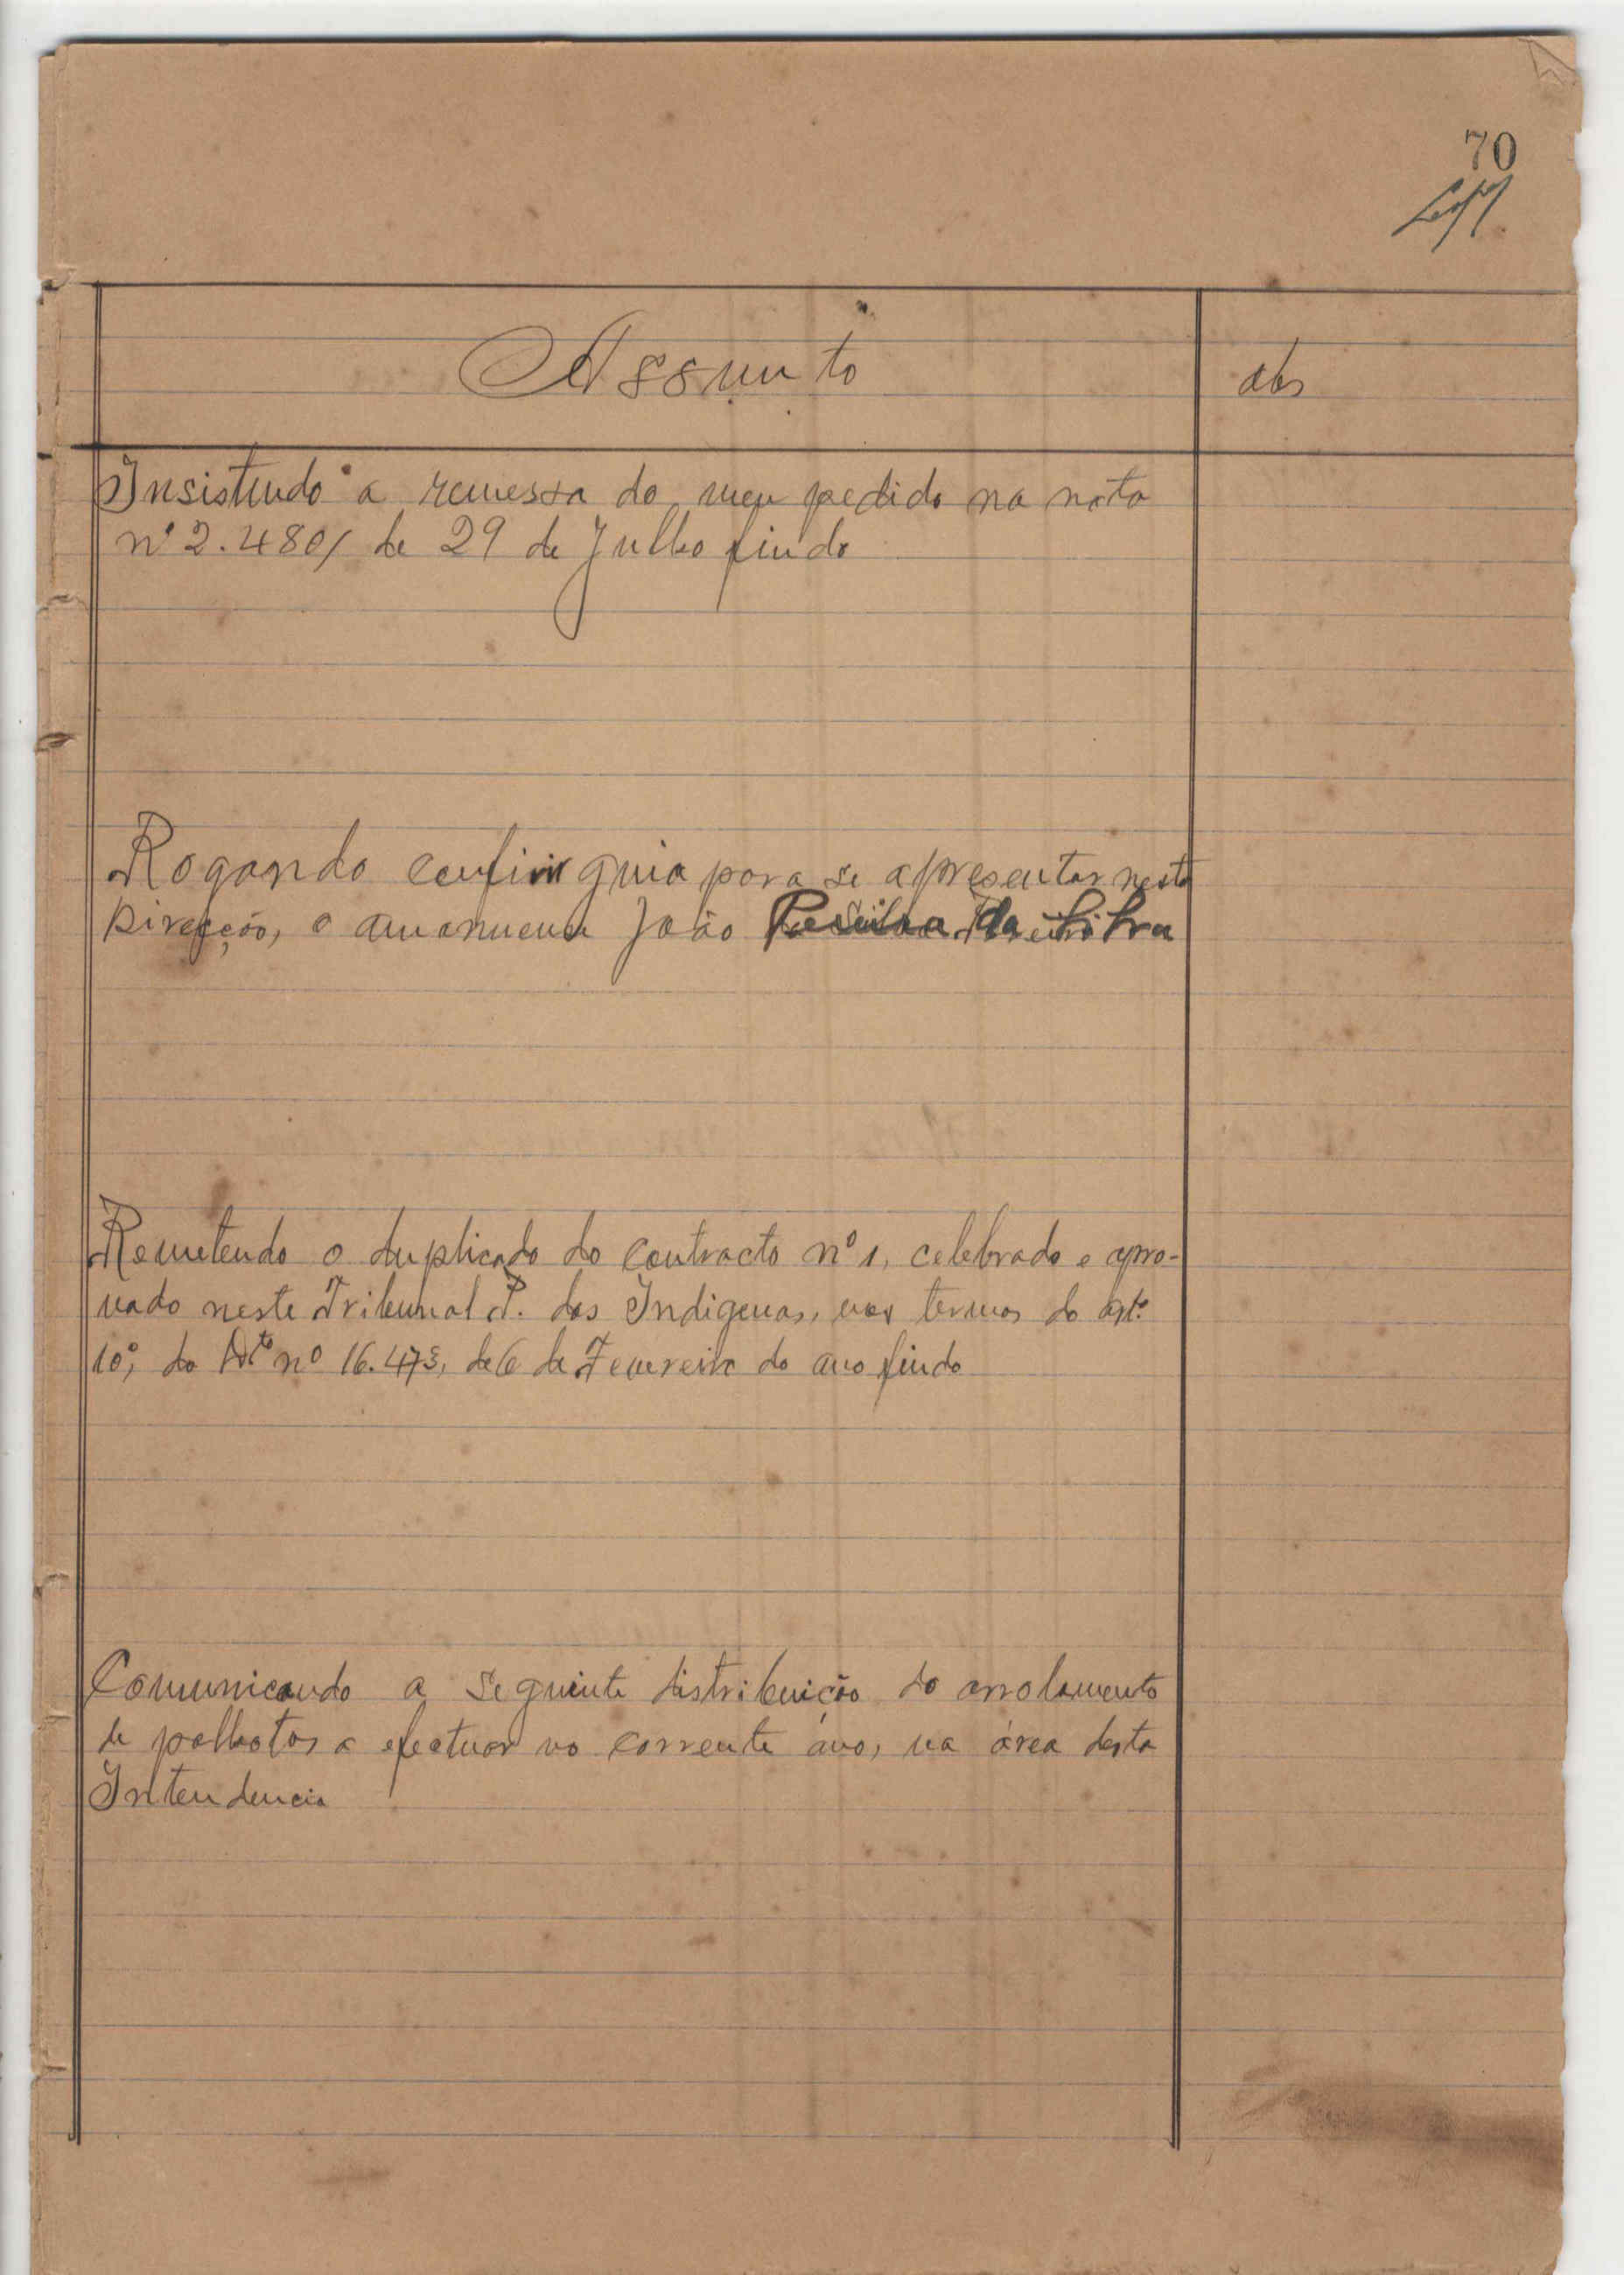 70
Assunto
obs
Insistindo a remessa do meu pedido na nota
nº 2.480/ de 29 de Julho findo
Rogando conferir guia para se apresentar nesta
Direcção, o amanuense João
Remetendo o duplicado do contracto nº 1, celebrado e apro-
vado neste Tribunal P. dos Indigenas, nos termos do artº.
10º, do Dtº nº 16.473, de 6 de Fevereiro do ano findo
Comunicando a seguinte distribuição do arrolamento
de palhotas a efectuar no corrente áno, na área desta
Intendencia